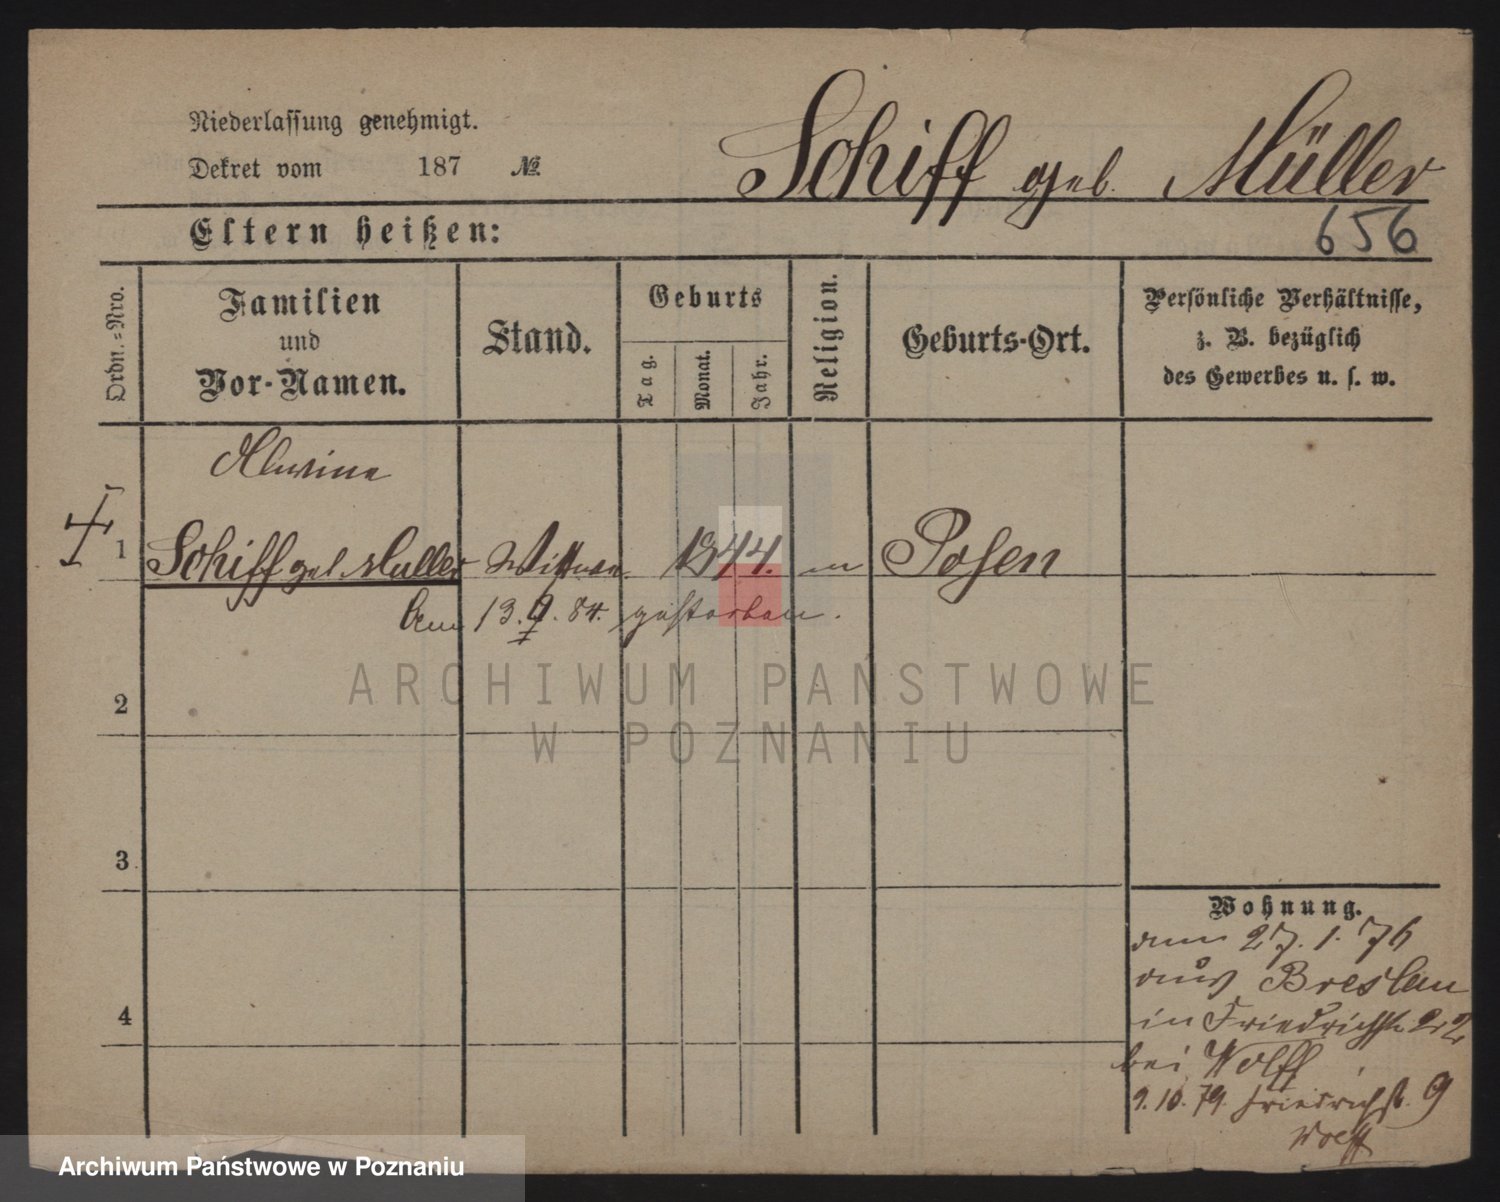 Niederlassung genehmigt.
Dekret vom 187 №
Schiff geb. Müller
Eltern heißen:
656
Ordn.-Nro.
Familien
und
Vor-Namen.
Stand.
Geburts
Tag.
Monat.
Jahr.
Religion.
Geburts-Ort.
Persönliche Verhältnisse,
z. B. bezüglich
des Gewerbes u. s. w.
Alwine
1 Schiff geb. Müller Wittwe. 1844. m Posen
Am 13. 9. 84. gestorben.
ARCHIWUM PAŃSTWOWE
W POZNANIU
2
3
4
Wohnung.
27. 1. 76
aus Breslau
in Friedrichstr 22
bei Wolff
9. 10. 79. Friedrichstr. 9
Wolff
Archiwum Państwowe w Poznaniu